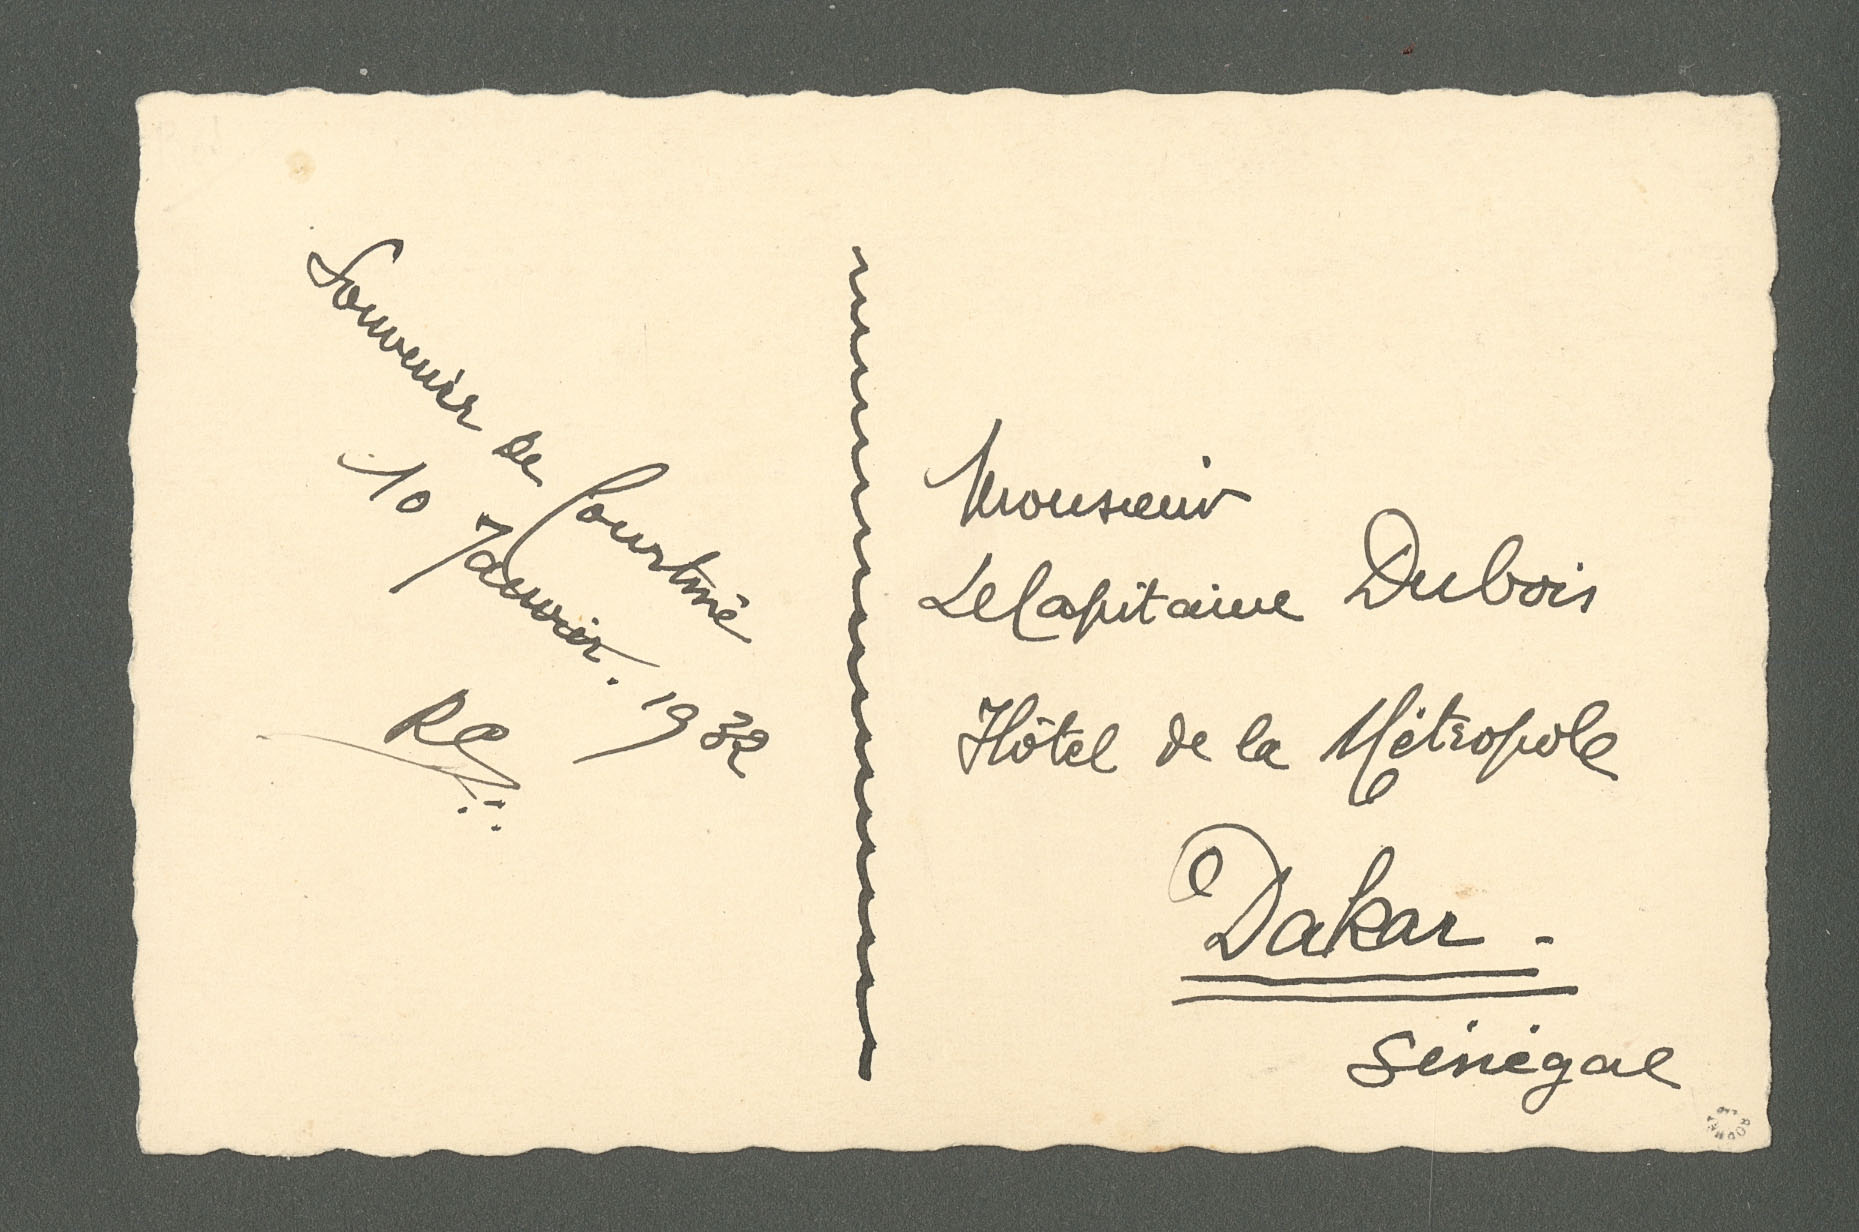 Souvenir de
10 Janvier. 1932
Monsieur
Le Capitaine Dubois
Hôtel de la Métropole
Dakar -
Sénégal